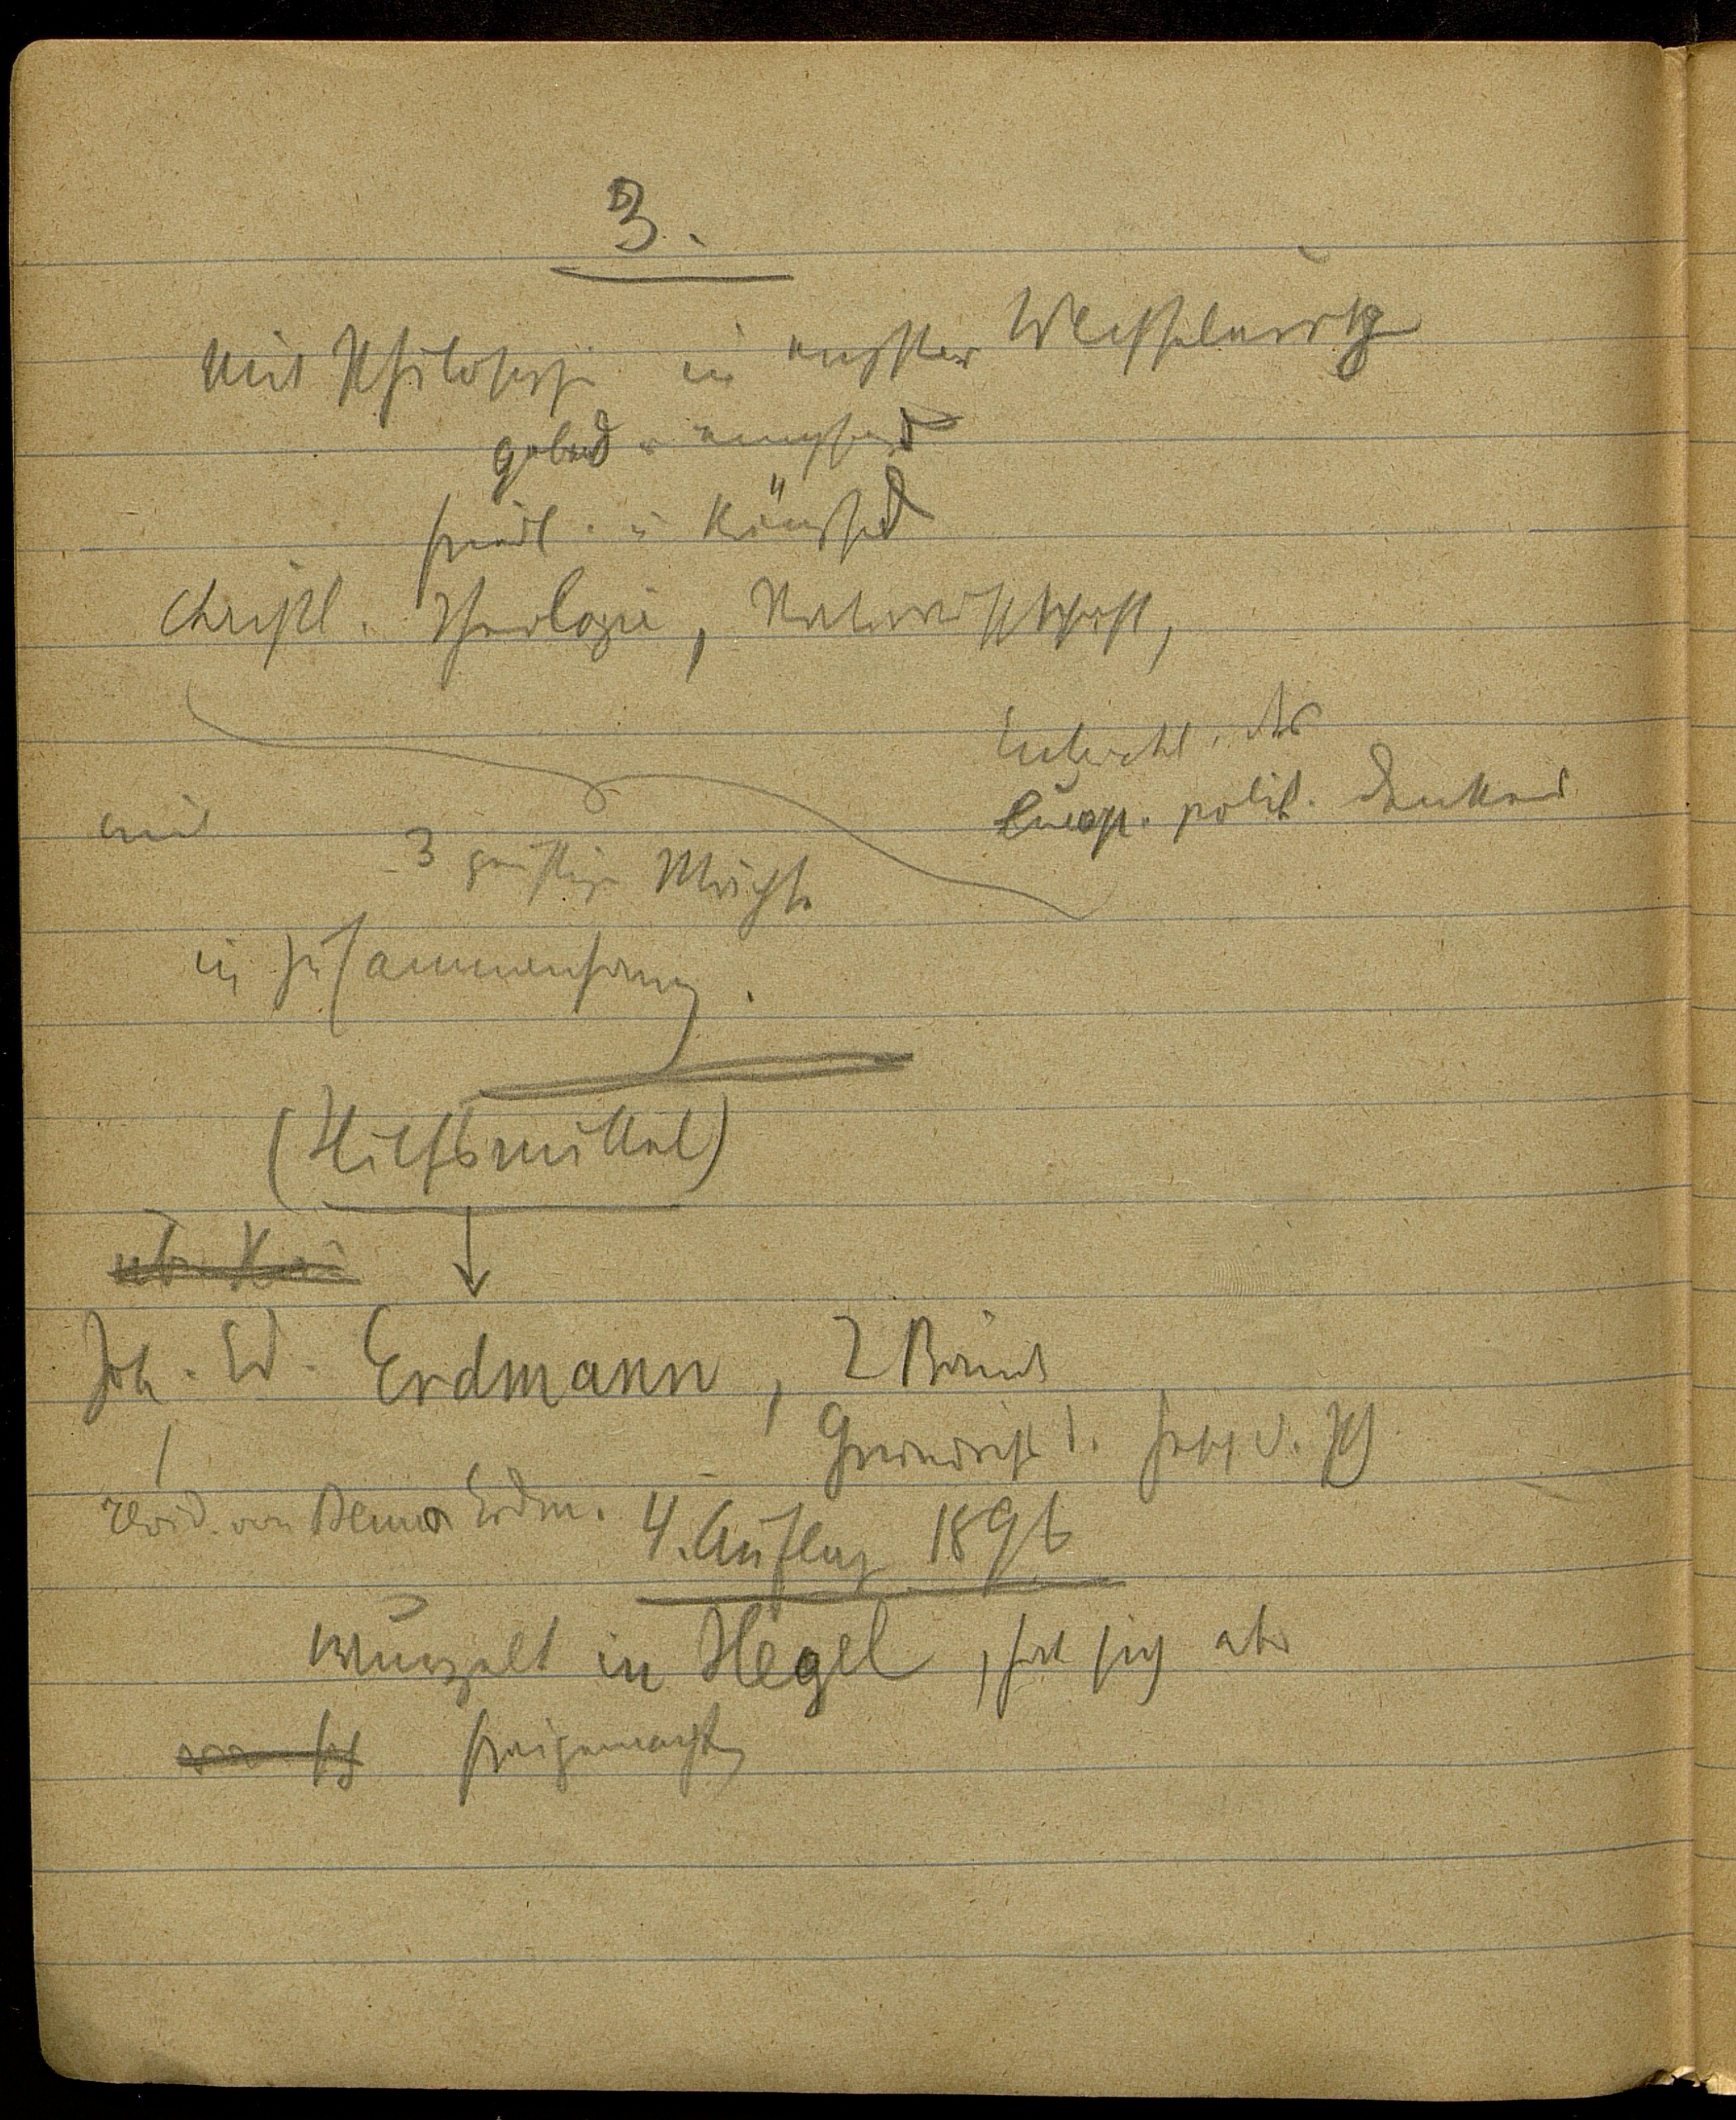 3.
mit Philosophie in engster Wechselwirkg
gebend u. empfangend
friedl. u. kämpfend
christl. Theologie, Naturwissenschaft,
Entwickl. des
europ. polit. Denkens
mit 3 geistige Mächte
in Zusammenhang.
(Hilfsmittel)
Joh. Ed. Erdmann, 2 Bände
Grundriss d. Gesch. d. Ph
revid. von Benno Erdm. 4. Auflag 1896
wurzelt in Hegel, hat sich aber
freigemacht